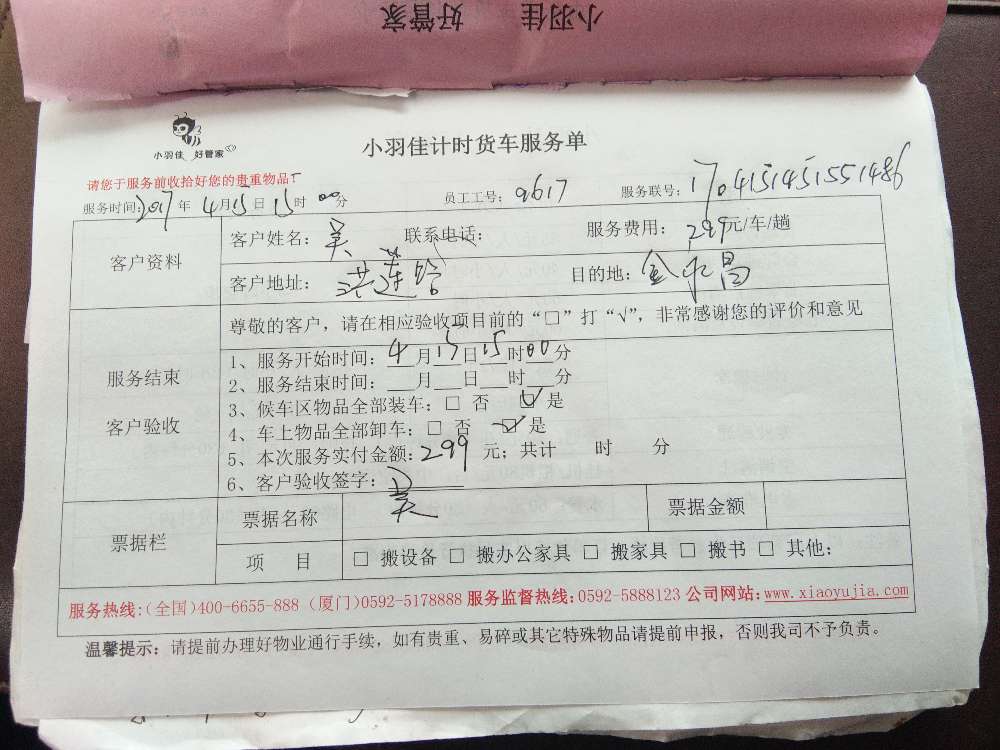 小羽佳 好管家
小羽佳 好管家
小羽佳计时货车服务单
请您于服务前收拾好您的贵重物品!
服务时间:2017年4月15日15时00分 员工工号:9617 服务联号:1704151451551486
客户资料
客户姓名:吴 联系电话: 服务费用:299元/车/趟
客户地址:洪莲 目的地:金永昌
服务结束
客户验收
尊敬的客户,请在相应验收项目前的“□”打“√”,非常感谢您的评价和意见
1、服务开始时间:4月15日15时00分
2、服务结束时间:___月___日___时___分
3、候车区物品全部装车:□ 否 ☑ 是
4、车上物品全部卸车:□ 否 ☑ 是
5、本次服务实付金额:299 元;共计 时 分
6、客户验收签字:吴
票据栏
票据名称 票据金额
项 目 □ 搬设备 □ 搬办公家具 □ 搬家具 □ 搬书 □ 其他:
服务热线:(全国)400-6655-888 (厦门)0592-5178888 服务监督热线:0592-5888123 公司网站:www.xiaoyujia.com
温馨提示:请提前办理好物业通行手续,如有贵重、易碎或其它特殊物品请提前申报,否则我司不予负责。